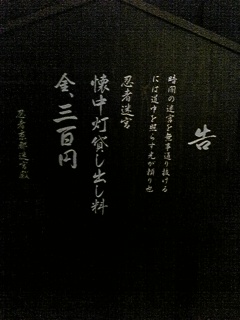 告
時間の迷宮を無事通り抜ける
には道中を照らす光が頼り也
忍者迷宮
懐中灯貸し出し料
金、三百円
忍者京都迷宮